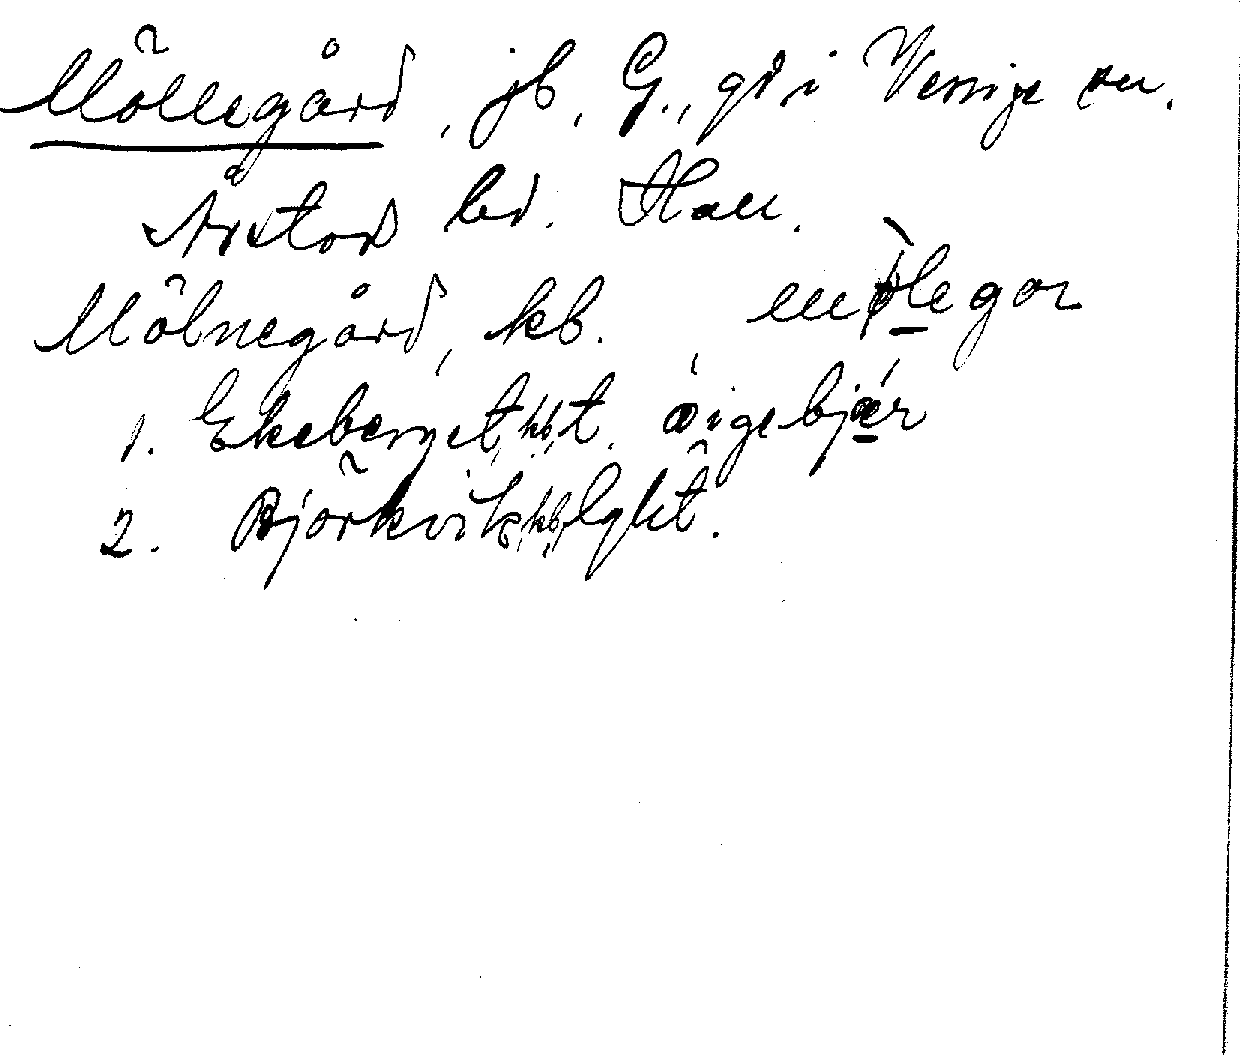 Möllegård, jb, G., gd i Vessige sn.
Årstad hd. Hall.
Mölnegård, kb. mølegar
1. Ekeberget, kb, t. äigebjær
2. Björkvik, kb, lght.